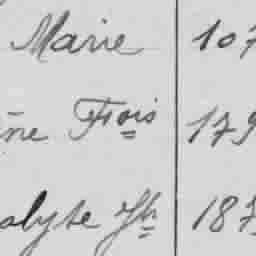 Marie 107
ne Fçois 179
olyte Jh 187